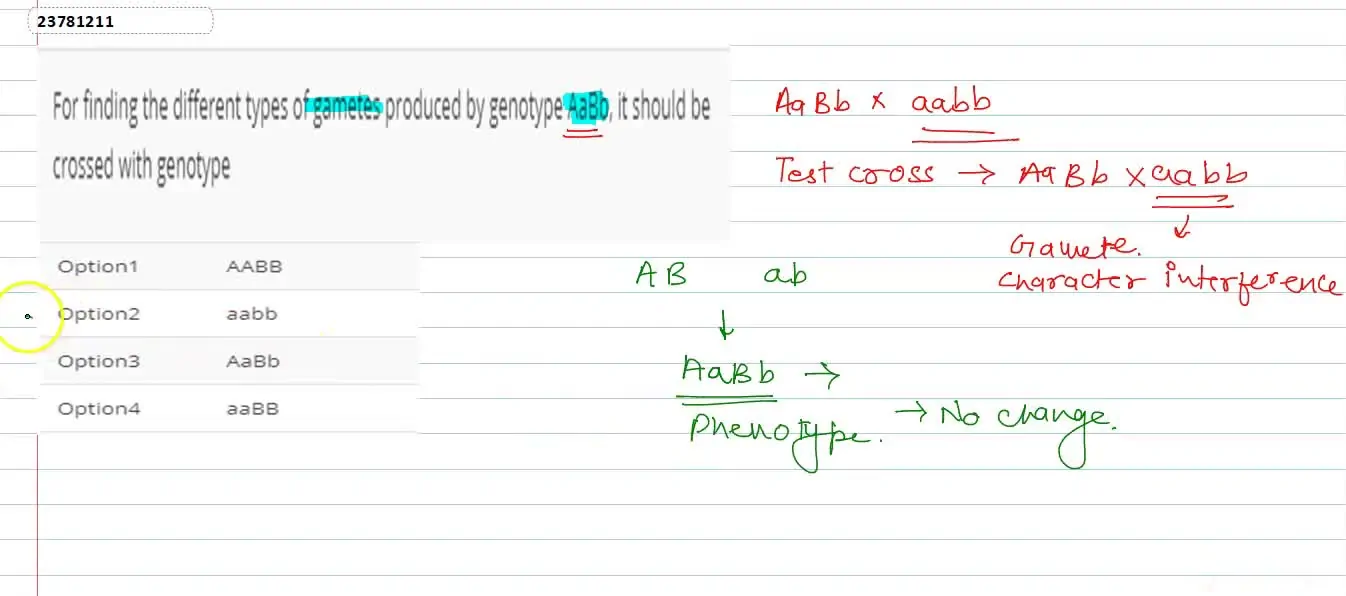 23781211
For finding the different types of gametes produced by genotype AaBb, it should be
crossed with genotype
Option1 AABB
Option2 aabb
Option3 AaBb
Option4 aaBB
AaBb x aabb
Test cross → AaBb x aabb
↓
Gamete.
character interference
AB ab
↓
AaBb →
Phenotype. → No change.